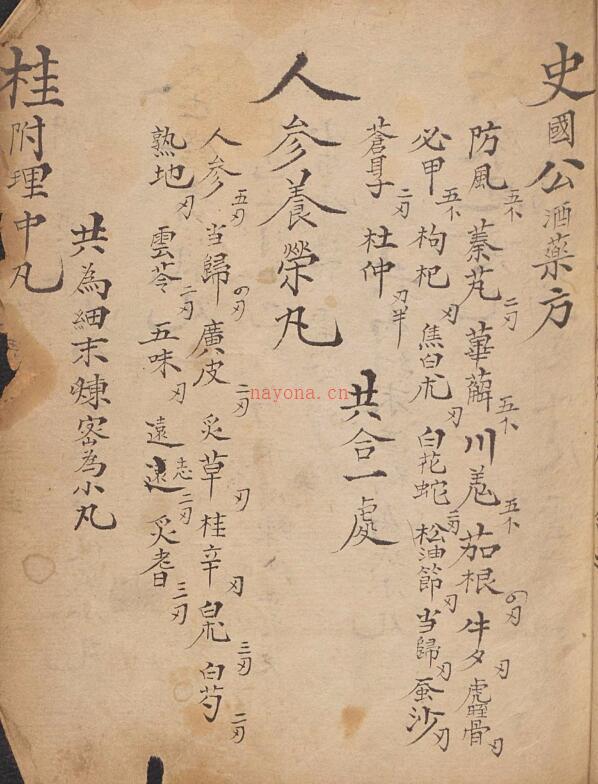 史國公酒藥方
防風五卜 蓁艽二刃 萆薢五卜 川羌五卜 茄根〇刃 牛夕刃 虎脛骨刃
必甲五卜 枸杞刃 焦白朮刃 白花蛇二刃 松油節刃 当歸刃 蚕沙刃
蒼耳子二刃 杜仲刃半
共合一處
人参養榮丸
人参五刃 当歸〇刃 廣皮二刃 炙草刃 桂辛刃 白朮三刃 白芍二刃
熟地刃 雲苓二刃 五味刃 遠志二刃 炙耆三刃
共為細末煉密為小丸
桂附理中丸
nayona.cn